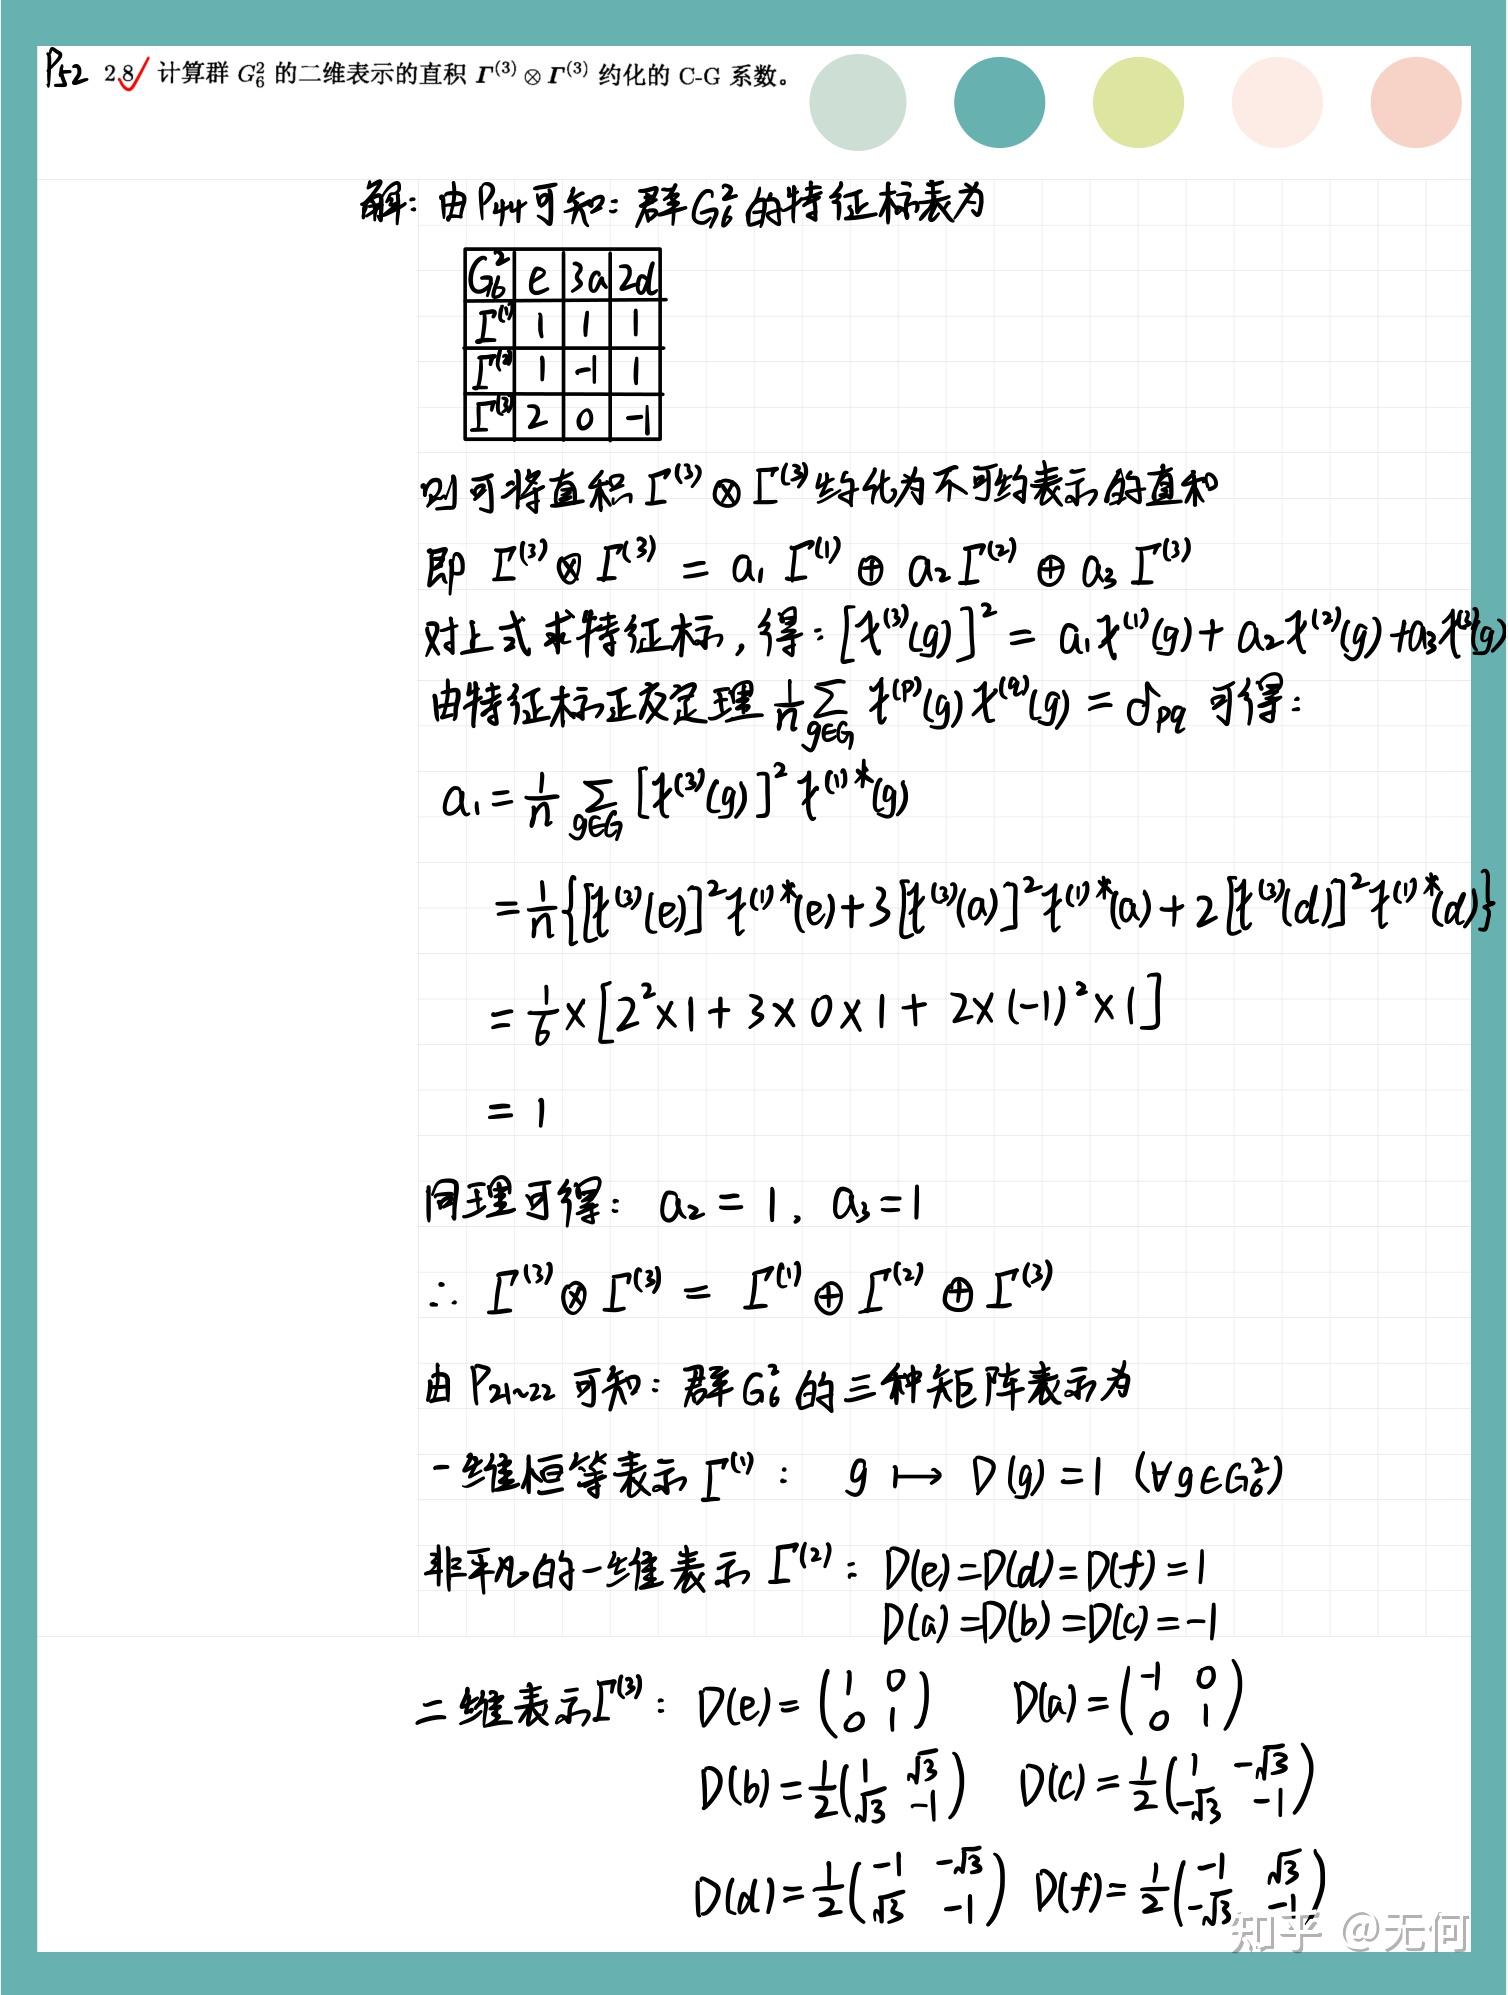 P52 2.8 计算群 G₆² 的二维表示的直积 Γ⁽³⁾ ⊗ Γ⁽³⁾ 约化的 C-G 系数。
解: 由P44可知: 群G₆²的特征标表为
G₆² e 3a 2d
Γ⁽¹⁾ 1 1 1
Γ⁽²⁾ 1 -1 1
Γ⁽³⁾ 2 0 -1
则可将直积 Γ⁽³⁾ ⊗ Γ⁽³⁾ 约化为不可约表示的直和
即 Γ⁽³⁾ ⊗ Γ⁽³⁾ = a₁ Γ⁽¹⁾ ⊕ a₂ Γ⁽²⁾ ⊕ a₃ Γ⁽³⁾
对上式求特征标, 得: [χ⁽³⁾(g)]² = a₁χ⁽¹⁾(g) + a₂χ⁽²⁾(g) + a₃χ⁽³⁾(g)
由特征标正交定理 1/n ∑_{g∈G} χ⁽ᵖ⁾(g) χ⁽q⁾(g) = δpq 可得:
a₁ = 1/n ∑_{g∈G} [χ⁽³⁾(g)]² χ⁽¹⁾*(g)
= 1/n {[χ⁽³⁾(e)]² χ⁽¹⁾*(e) + 3[χ⁽³⁾(a)]² χ⁽¹⁾*(a) + 2[χ⁽³⁾(d)]² χ⁽¹⁾*(d)}
= 1/6 × [2² × 1 + 3 × 0 × 1 + 2 × (-1)² × 1]
= 1
同理可得: a₂ = 1, a₃ = 1
∴ Γ⁽³⁾ ⊗ Γ⁽³⁾ = Γ⁽¹⁾ ⊕ Γ⁽²⁾ ⊕ Γ⁽³⁾
由 P21~22 可知: 群G₆² 的三种矩阵表示为
一维恒等表示 Γ⁽¹⁾: g ↦ D(g) = 1 (∀g∈G₆²)
非平凡的一维表示 Γ⁽²⁾: D(e)=D(d)=D(f)=1
D(a)=D(b)=D(c)=-1
二维表示Γ⁽³⁾: D(e) = (1 0; 0 1) D(a) = (-1 0; 0 1)
D(b) = 1/2 (1 √3; √3 -1) D(c) = 1/2 (1 -√3; -√3 -1)
D(d) = 1/2 (-1 -√3; √3 -1) D(f) = 1/2 (-1 √3; -√3 -1)
知乎 @无何